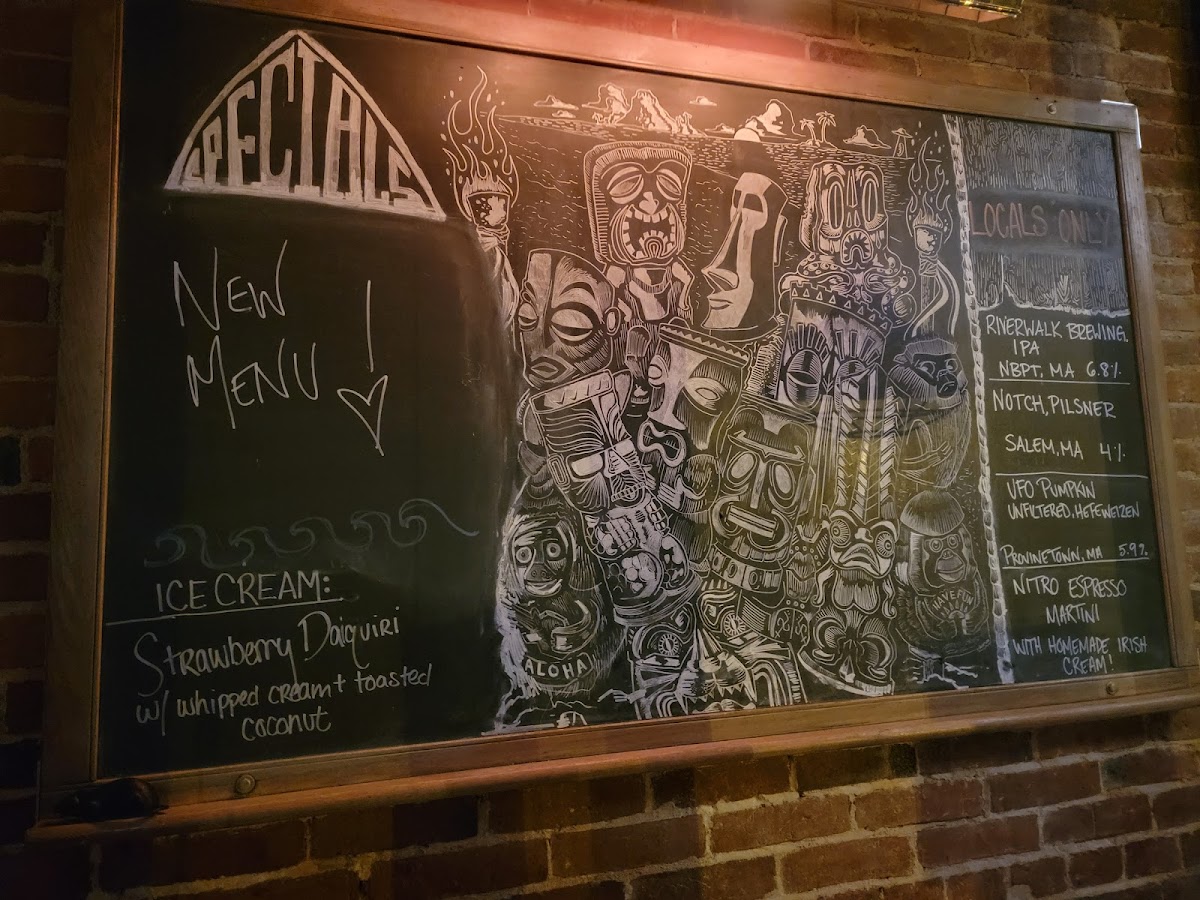 SPECIALS
NEW
MENU!
ICE CREAM:
Strawberry Daiquiri
w/ whipped cream + toasted
coconut
ALOHA
HAVE FUN
LOCALS ONLY
RIVERWALK BREWING.
IPA
NBPT, MA 6.8%
NOTCH, PILSNER
SALEM, MA 4%
UFO PUMPKIN
UNFILTERED, HEFEWEIZEN
PROVINETOWN, MA 5.9%
NITRO ESPRESSO
MARTINI
WITH HOMEMADE IRISH
CREAM!